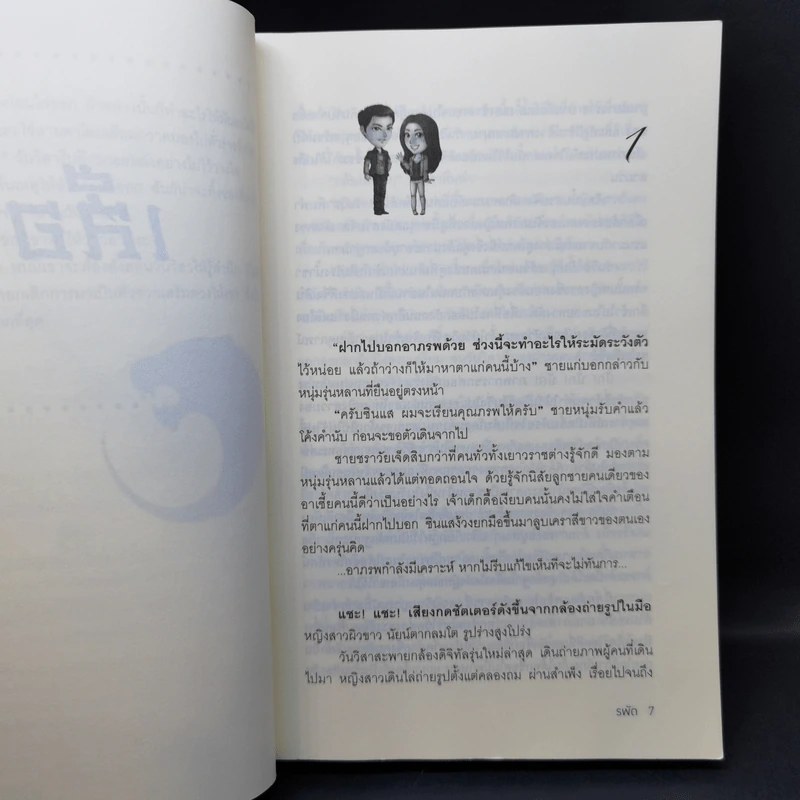 เสือ
1
“ฝากไปบอกอาภรพด้วย ช่วงนี้จะทำอะไรให้ระมัดระวังตัว
ไว้หน่อย แล้วถ้าว่างก็ให้มาหาตาแก่คนนี้บ้าง” ชายแก่บอกกล่าวกับ
หนุ่มรุ่นหลานที่ยืนอยู่ตรงหน้า
“ครับซินแส ผมจะเรียนคุณภรพให้ครับ” ชายหนุ่มรับคำแล้ว
โค้งคำนับ ก่อนจะขอตัวเดินจากไป
ชายชราวัยเจ็ดสิบกว่าที่คนทั่วทั้งเยาวราชต่างรู้จักดี มองตาม
หนุ่มรุ่นหลานแล้วได้แต่ทอดถอนใจ ด้วยรู้จักนิสัยลูกชายคนเดียวของ
อาเซี้ยคนนี้ดีว่าเป็นอย่างไร เจ้าเด็กดื้อเงียบคนนั้นคงไม่ใส่ใจคำเตือน
ที่ตาแก่คนนี้ฝากไปบอก ซินแสง้วงยกมือขึ้นมาลูบเคราสีขาวของตนเอง
อย่างครุ่นคิด
...อาภรพกำลังมีเคราะห์ หากไม่รีบแก้ไขเห็นทีจะไม่ทันการ...
แชะ! แชะ! เสียงกดชัตเตอร์ดังขึ้นจากกล้องถ่ายรูปในมือ
หญิงสาวผิวขาว นัยน์ตากลมโต รูปร่างสูงโปร่ง
วันวิสาสะพายกล้องดิจิทัลรุ่นใหม่ล่าสุด เดินถ่ายภาพผู้คนที่เดิน
ไปมา หญิงสาวเดินไล่ถ่ายรูปตั้งแต่คลองถม ผ่านสำเพ็ง เรื่อยไปจนถึง
รพัด 7